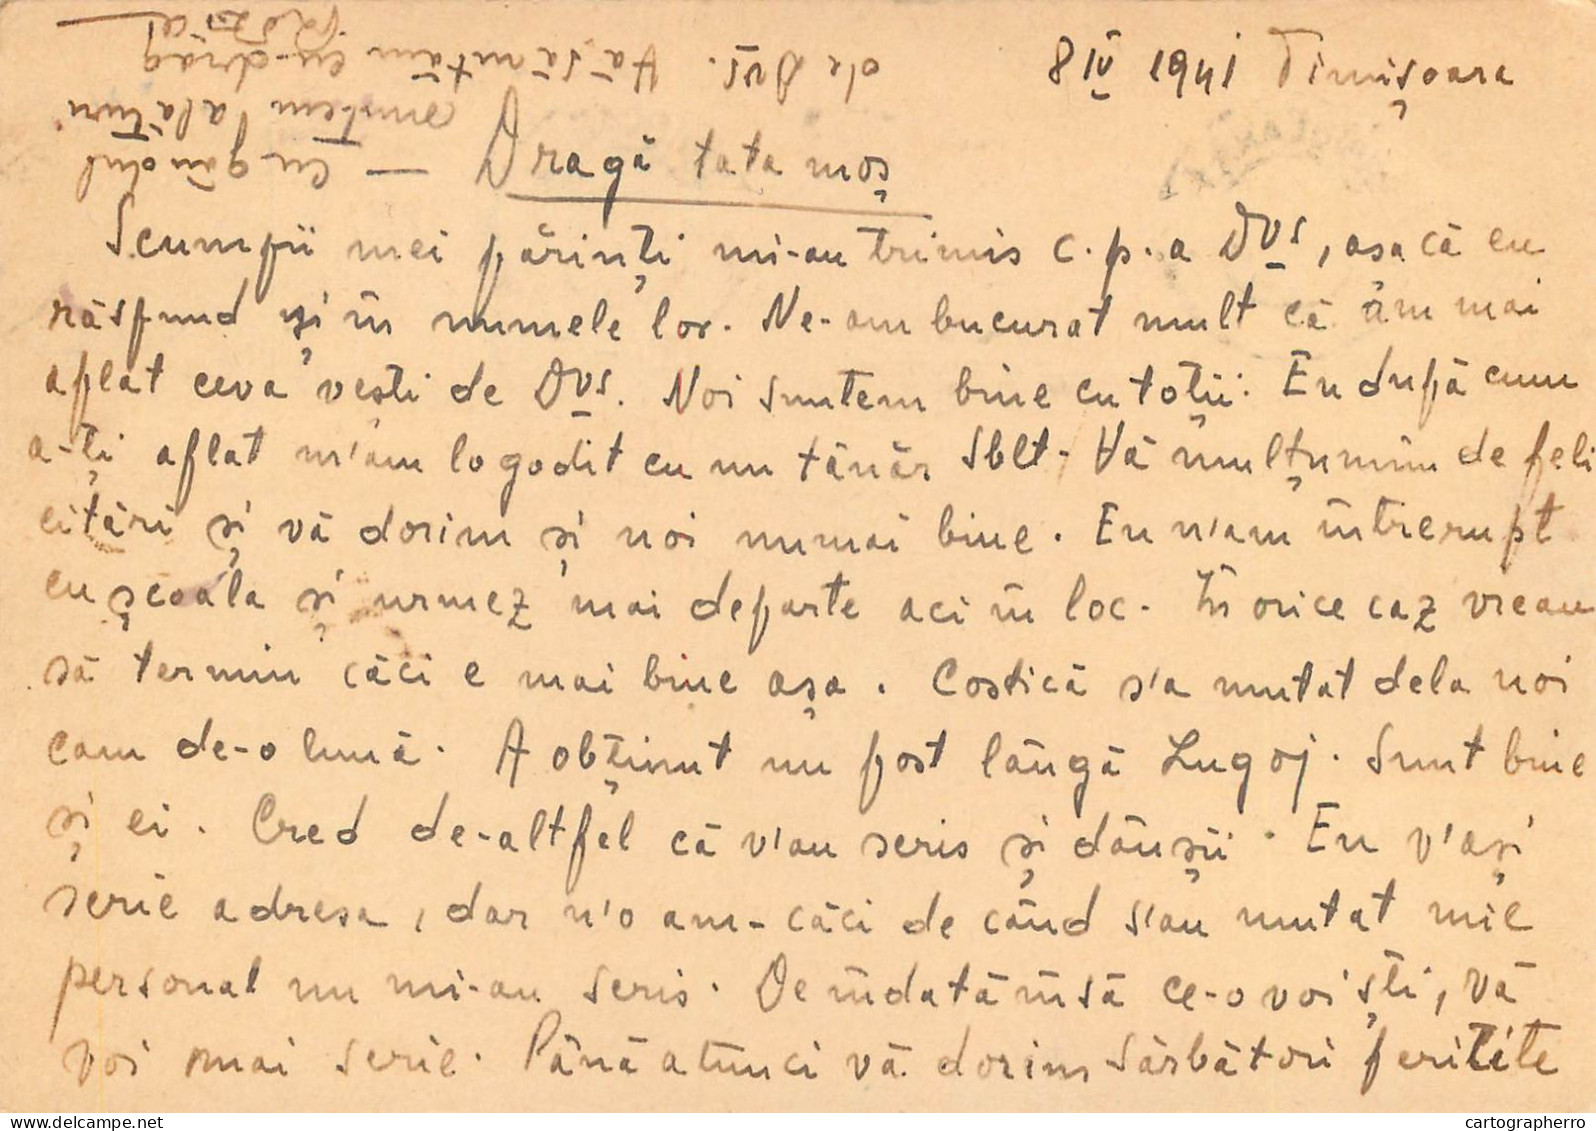 8 IV 1941 Timișoara
Dragă tata moș
Scumpii mei părinți mi-au trimis c.p. a Dvs, așa că eu
răspund și în numele lor. Ne-am bucurat mult că am mai
aflat ceva vești de Dvs. Noi suntem bine cu toții. Eu după cum
a-ți aflat m'am logodit cu un tânăr Sblt. Vă mulțumim de feli
citări și vă dorim și noi numai bine. Eu n'am întrerupt
cu școala și urmez mai departe aci în loc. În orice caz vreau
să termin căci e mai bine așa. Costică s'a mutat dela noi
cam de-o lună. A obținut un post lângă Lugoj. Sunt bine
și ei. Cred de-altfel că v'au scris și dânșii. Eu v'ași
scrie adresa, dar n'o am - căci de când s'au mutat mie
personal nu mi-au scris. De îndată însă ce-o voi ști, vă
voi mai scrie. Până atunci vă dorim Sărbători fericite
– cu gândul
suntem alături
de Dvs. Vă sărutăm cu drag
cartographerro